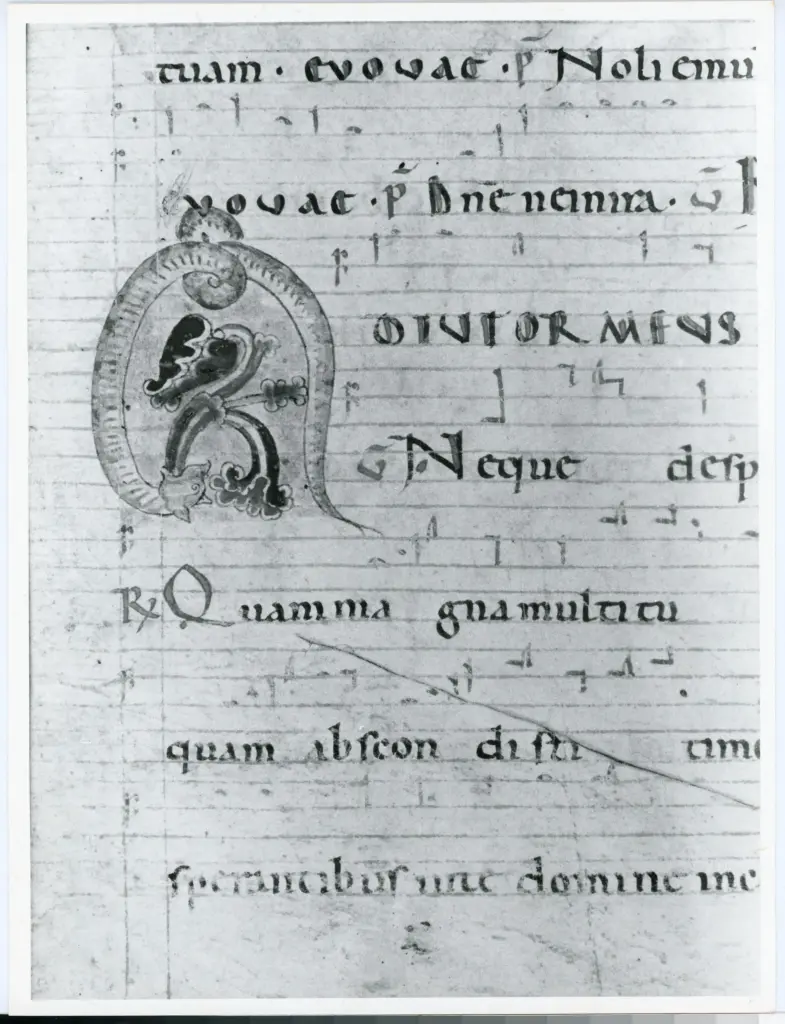 tuam · evovae · p̄ Noli emu
vovae · p̄ Dnē ne in ira · v̄
ADIUTOR MEUS
G Neque desp
℟ Quam ma gna multitu
quam abscon disti time
sperantibus in te domine me